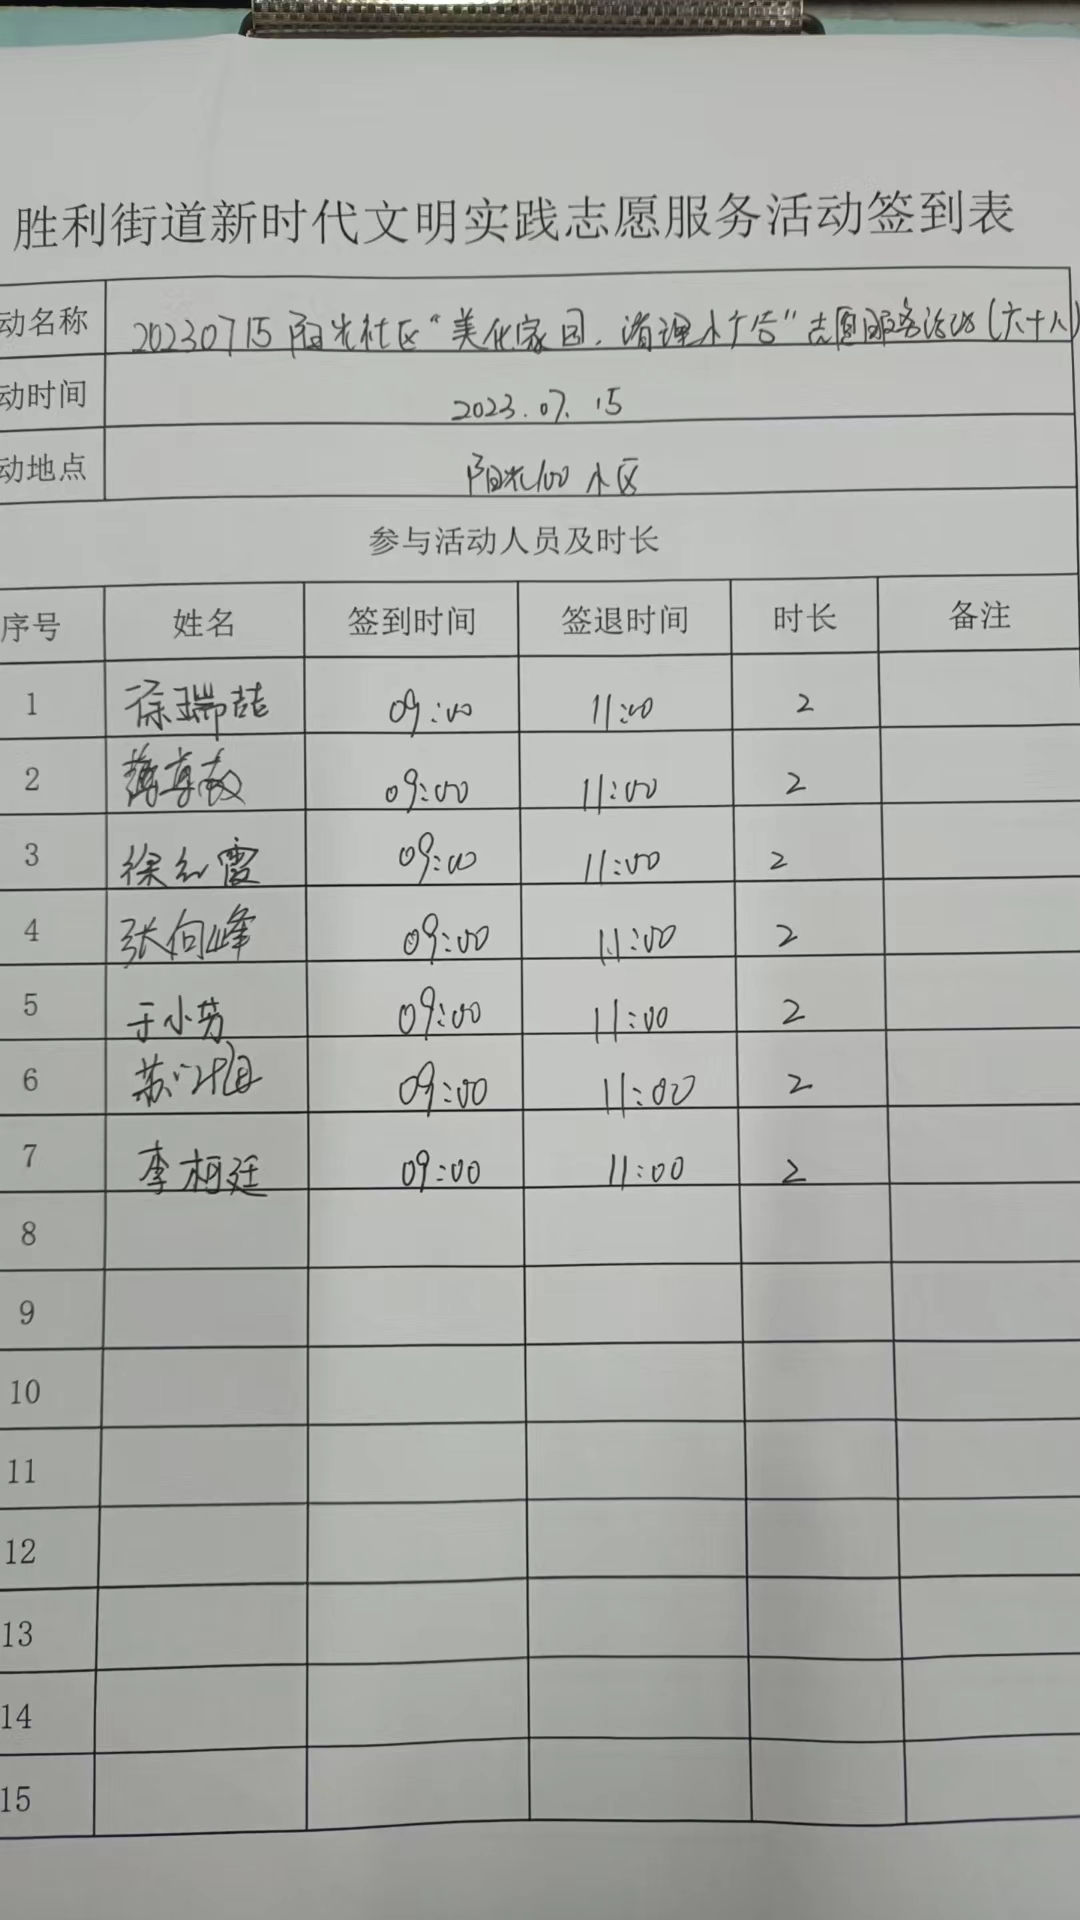 胜利街道新时代文明实践志愿服务活动签到表
动名称 20230715阳光社区“美化家园，清理小广告”志愿服务活动(六十八)
动时间 2023.07.15
动地点 阳光100小区
参与活动人员及时长
序号 姓名 签到时间 签退时间 时长 备注
1 徐瑞喆 09:00 11:00 2
2 09:00 11:00 2
3 徐红霞 09:00 11:00 2
4 张向峰 09:00 11:00 2
5 于小芳 09:00 11:00 2
6 苏 09:00 11:00 2
7 李柯廷 09:00 11:00 2
8
9
10
11
12
13
14
15